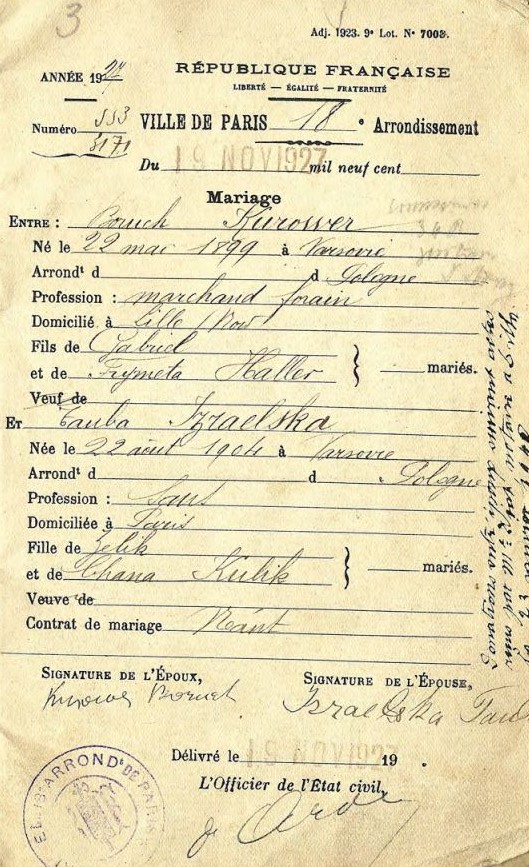 3
Adj. 1923. 9e Lot. No 7003.
ANNÉE 1927
RÉPUBLIQUE FRANÇAISE
LIBERTÉ — ÉGALITÉ — FRATERNITÉ
Numéro 553
VILLE DE PARIS 18e Arrondissement
Du 19 NOV 1927 mil neuf cent
Mariage
ENTRE : Boruch Kurower
Né le 22 mai 1899 à Varsovie
Arrondt d d Pologne
Profession : marchand forain
Domicilié à Lille Nord
Fils de Gabriel
et de Frymeta Haller } mariés.
Veuf de
ET Tauba Izraelska
Née le 22 août 1904 à Varsovie
Arrondt d d Pologne
Profession : Sans
Domiciliée à Paris
Fille de Zelik
et de Chana Kulik } mariés.
Veuve de
Contrat de mariage Néant
SIGNATURE DE L'ÉPOUX,
SIGNATURE DE L'ÉPOUSE,
Boruch
Izraelska
Délivré le 19 NOV 1927 19 .
L'Officier de l'État civil,
ARRONDt DE PARIS